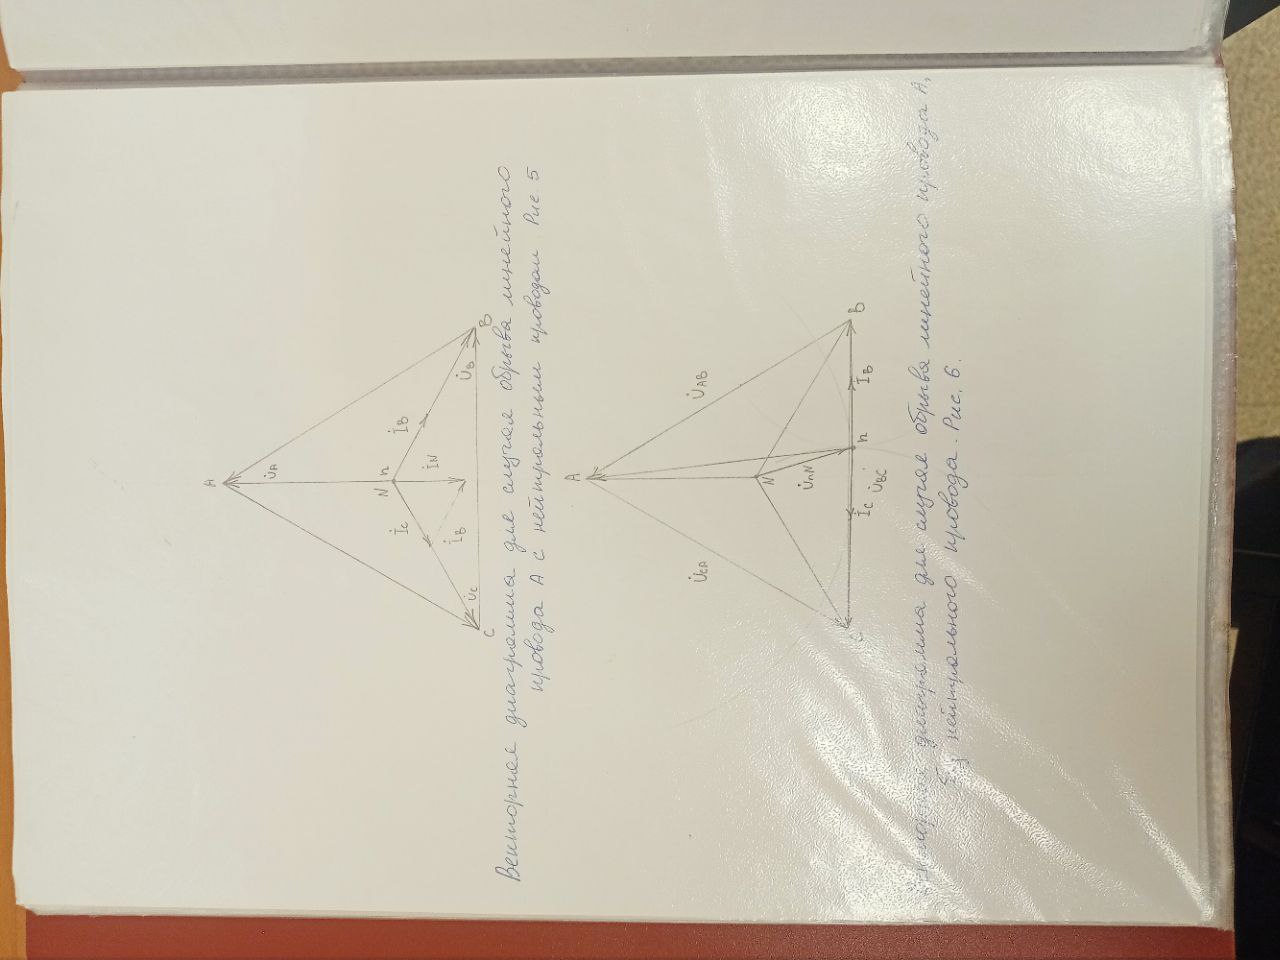 A
U̇A
N n
İC
İB
İN
İB
U̇C
U̇B
C
B
Векторная диаграмма для случая обрыва линейного
провода А с нейтральным проводом Рис. 5
A
U̇CA
U̇AB
N
U̇nN
C
B
İC
n
İB
U̇BC
Векторная диаграмма для случая обрыва линейного провода А,
нейтрального провода. Рис. 6.